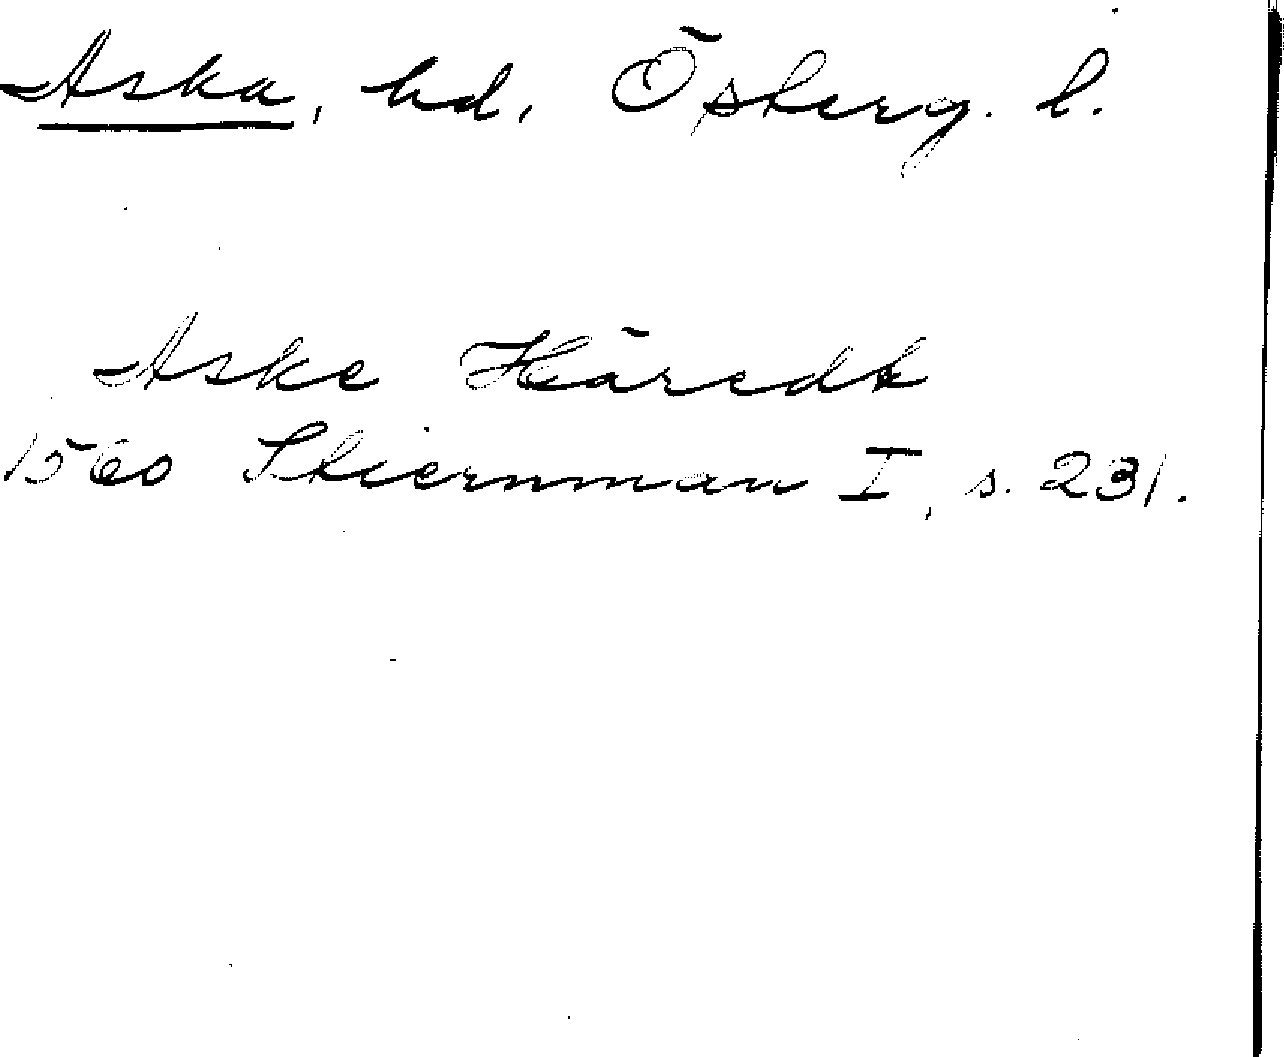 Aska, hd, Österg. l.
Aske Häredt
1560 Stiernman I, s. 231.